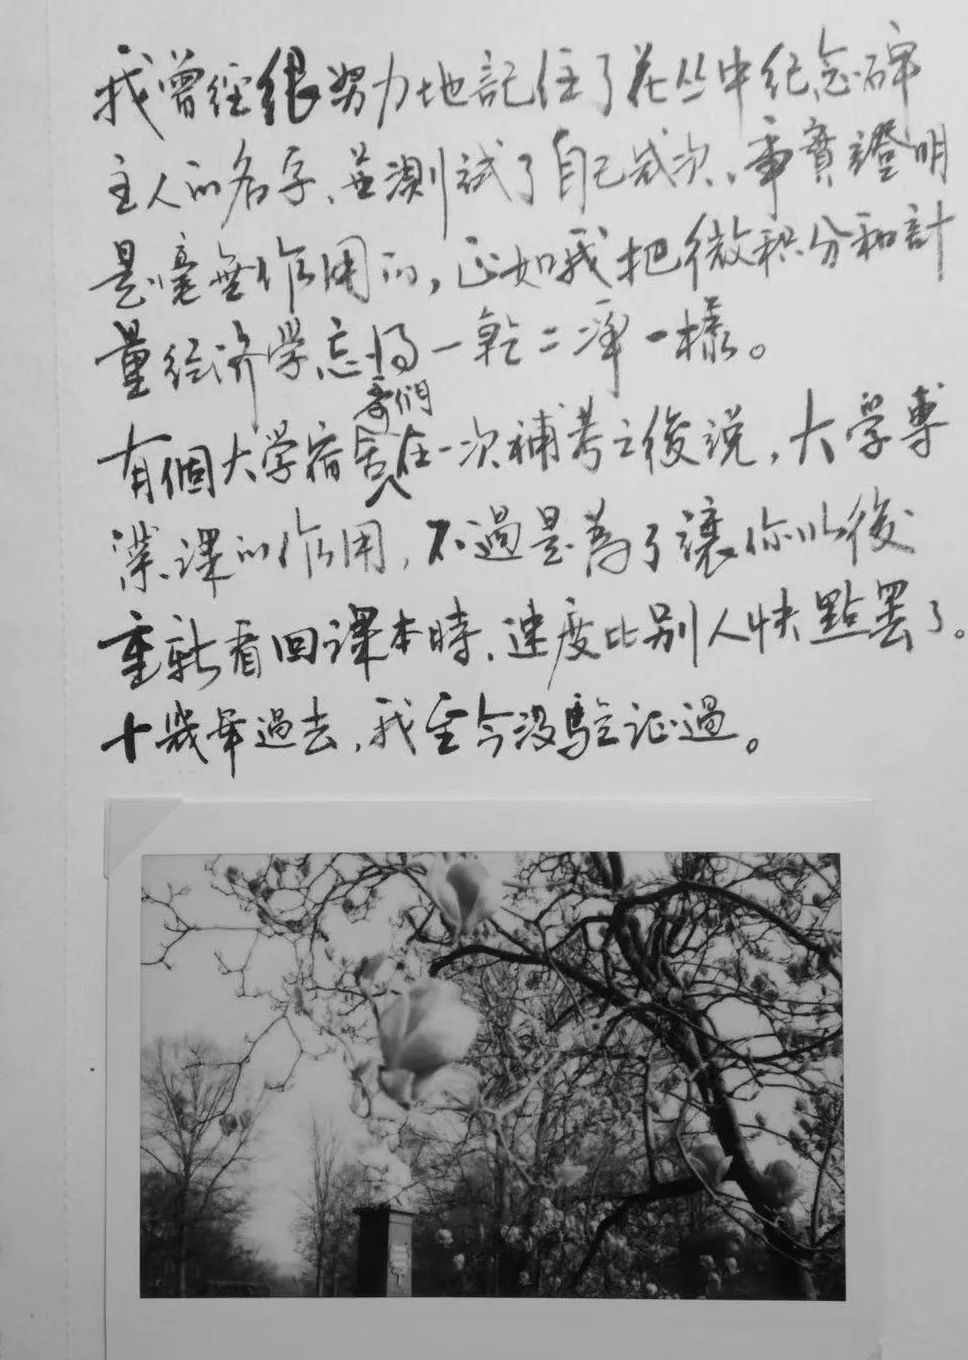 我曾經很努力地記住了花丛中纪念碑
主人的名字、並測試了自己幾次、事實證明
是毫無作用的，正如我把微积分和計
量经济学忘得一乾二淨一樣。
有個大学宿舍哥們在一次補考之後説，大学專
業课的作用，不過是為了讓你以後
重新看回课本時、速度比别人快點罢了。
十幾年過去，我至今没驗证過。